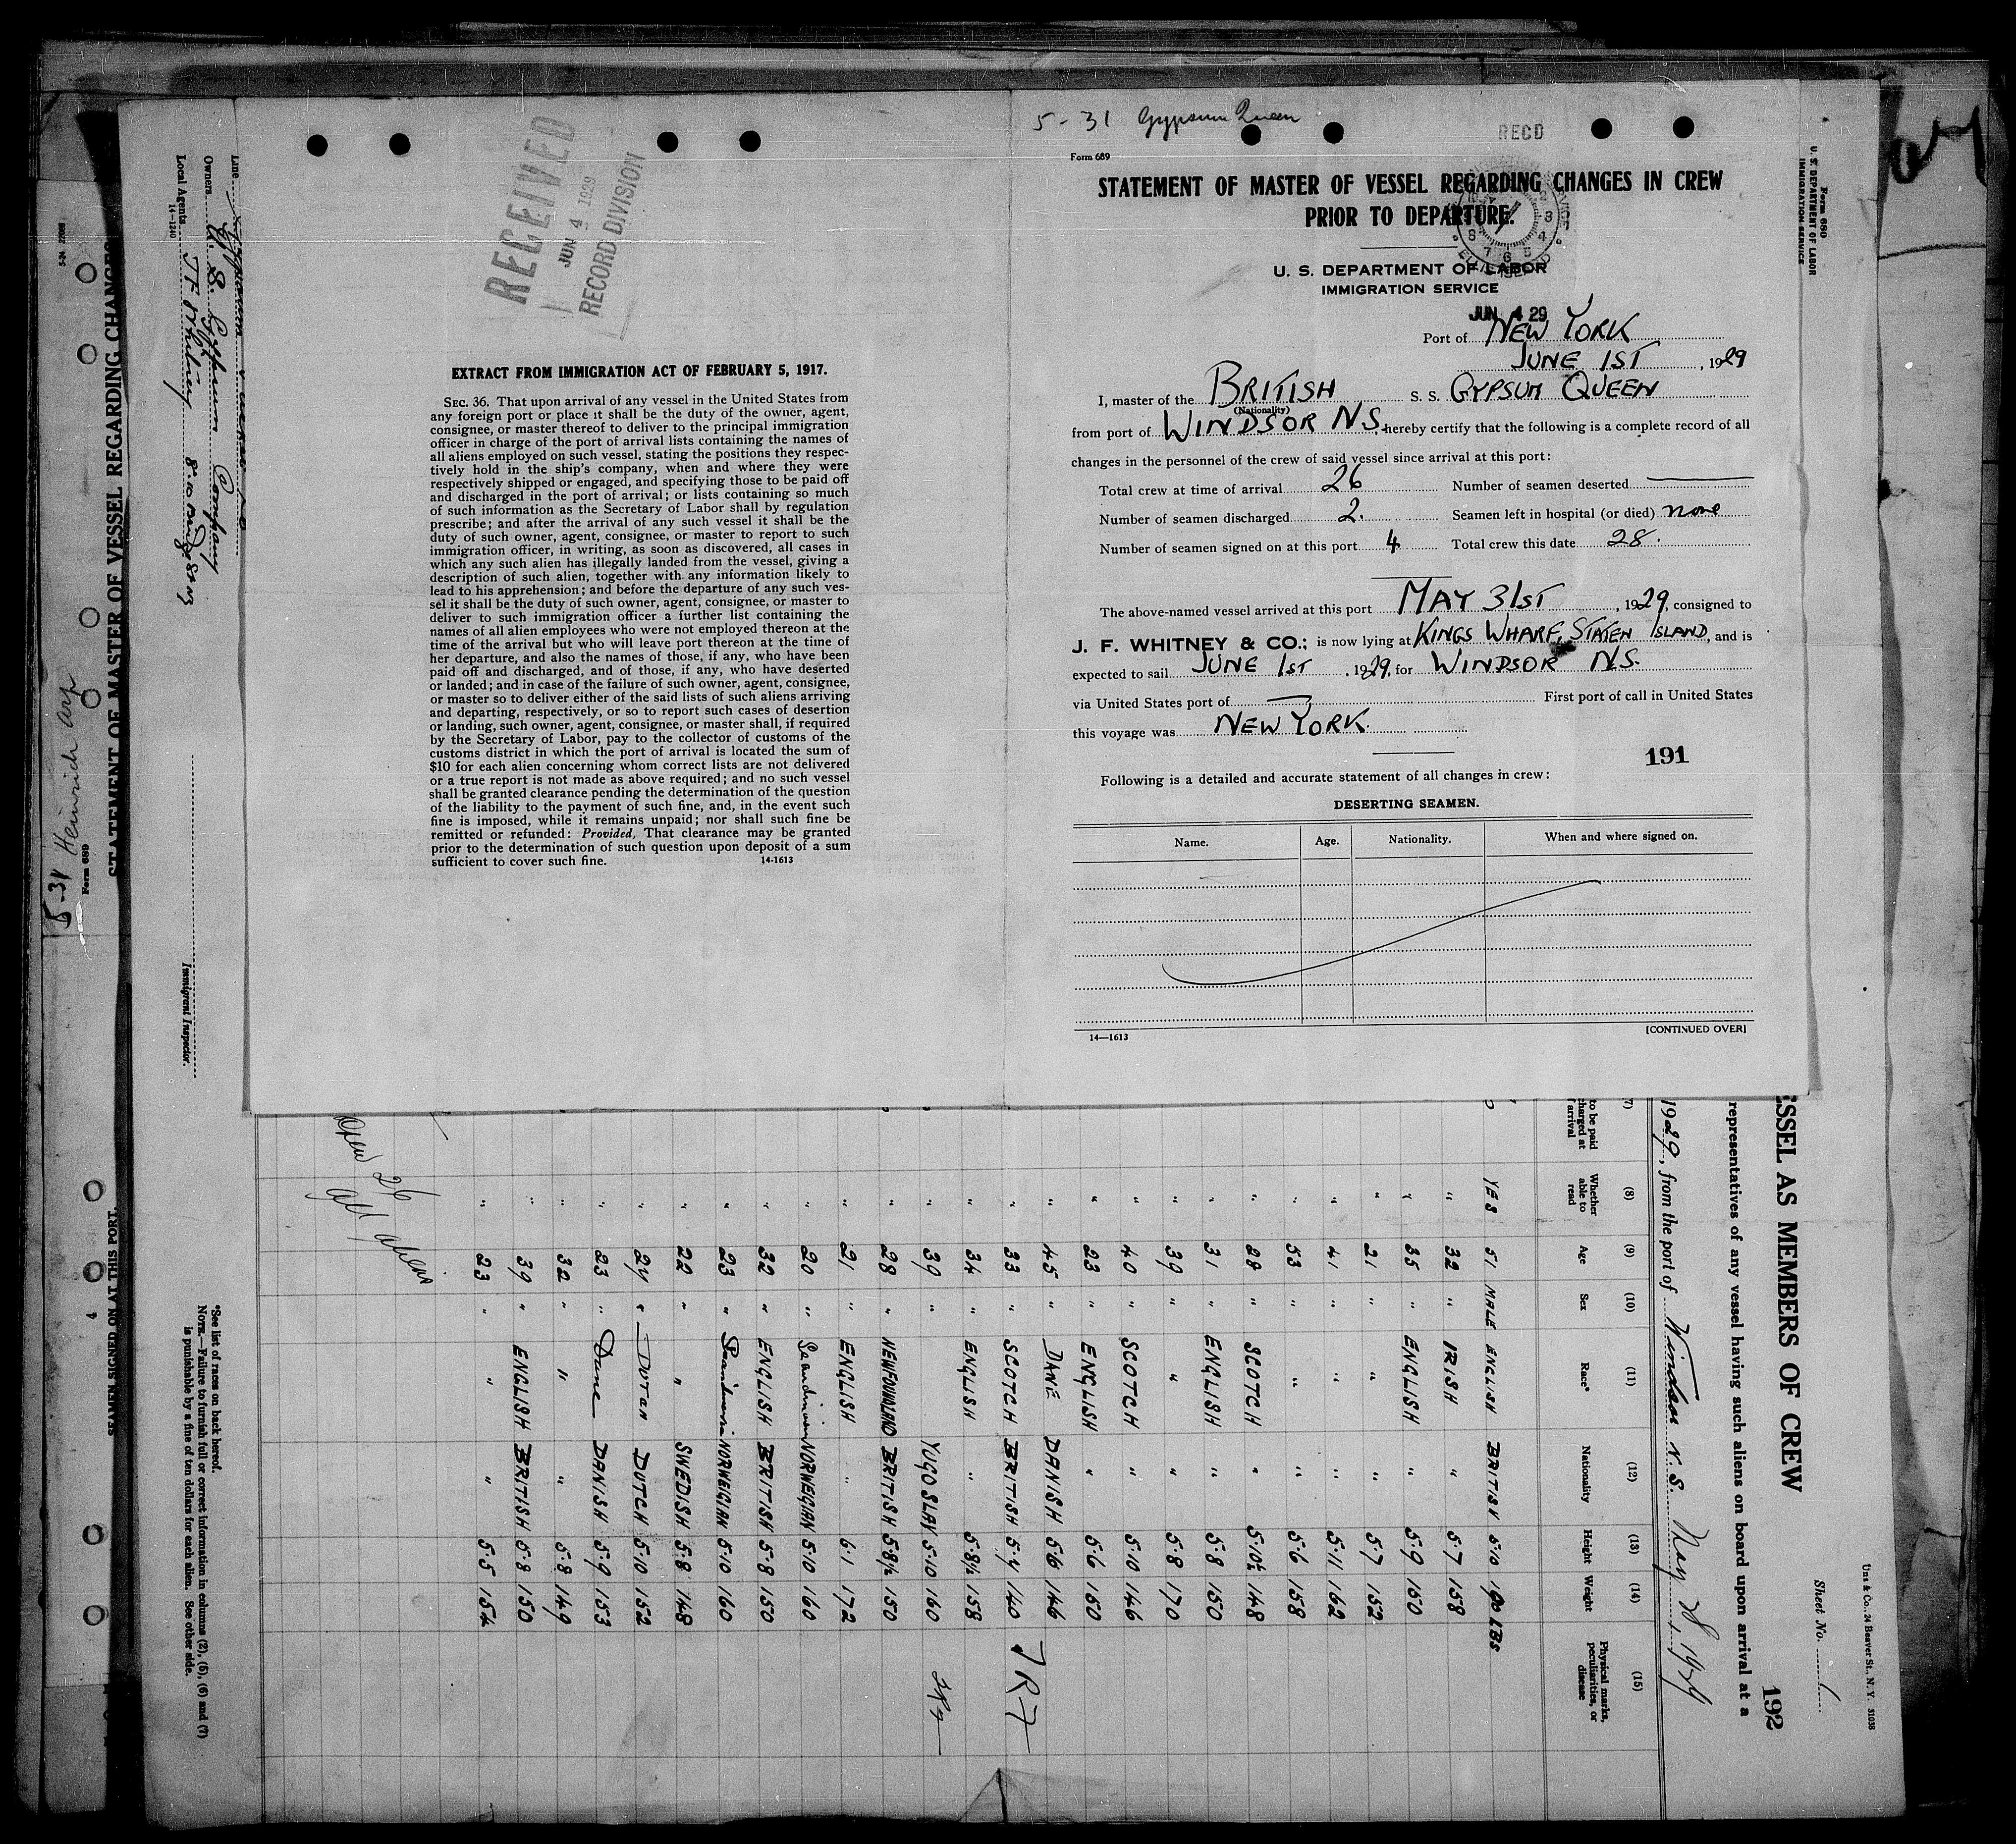 5-31 Gypsum Queen
RECD
Form 689
STATEMENT OF MASTER OF VESSEL REGARDING CHANGES IN CREW
PRIOR TO DEPARTURE.
U. S. DEPARTMENT OF LABOR
IMMIGRATION SERVICE
JUN 4 29
Port of NEW YORK
JUNE 1ST, 1929
I, master of the BRITISH S. S. GYPSUM QUEEN
(Nationality)
from port of WINDSOR N.S. hereby certify that the following is a complete record of all
changes in the personnel of the crew of said vessel since arrival at this port:
Total crew at time of arrival 26 Number of seamen deserted
Number of seamen discharged 2. Seamen left in hospital (or died) none
Number of seamen signed on at this port 4 Total crew this date 28.
The above-named vessel arrived at this port MAY 31ST, 1929, consigned to
J. F. WHITNEY & CO.; is now lying at KINGS WHARF, STATEN ISLAND, and is
expected to sail JUNE 1ST, 1929, for WINDSOR N.S.
via United States port of First port of call in United States
this voyage was NEW YORK.
191
Following is a detailed and accurate statement of all changes in crew:
DESERTING SEAMEN.
Name. Age. Nationality. When and where signed on.
14—1613 [CONTINUED OVER]
RECEIVED
JUN 4 1929
RECORD DIVISION
EXTRACT FROM IMMIGRATION ACT OF FEBRUARY 5, 1917.
SEC. 36. That upon arrival of any vessel in the United States from
any foreign port or place it shall be the duty of the owner, agent,
consignee, or master thereof to deliver to the principal immigration
officer in charge of the port of arrival lists containing the names of
all aliens employed on such vessel, stating the positions they respec-
tively hold in the ship's company, when and where they were
respectively shipped or engaged, and specifying those to be paid off
and discharged in the port of arrival; or lists containing so much
of such information as the Secretary of Labor shall by regulation
prescribe; and after the arrival of any such vessel it shall be the
duty of such owner, agent, consignee, or master to report to such
immigration officer, in writing, as soon as discovered, all cases in
which any such alien has illegally landed from the vessel, giving a
description of such alien, together with any information likely to
lead to his apprehension; and before the departure of any such ves-
sel it shall be the duty of such owner, agent, consignee, or master to
deliver to such immigration officer a further list containing the
names of all alien employees who were not employed thereon at the
time of the arrival but who will leave port thereon at the time of
her departure, and also the names of those, if any, who have been
paid off and discharged, and of those, if any, who have deserted
or landed; and in case of the failure of such owner, agent, consignee,
or master so to deliver either of the said lists of such aliens arriving
and departing, respectively, or so to report such cases of desertion
or landing, such owner, agent, consignee, or master shall, if required
by the Secretary of Labor, pay to the collector of customs of the
customs district in which the port of arrival is located the sum of
$10 for each alien concerning whom correct lists are not delivered
or a true report is not made as above required; and no such vessel
shall be granted clearance pending the determination of the question
of the liability to the payment of such fine, and, in the event such
fine is imposed, while it remains unpaid; nor shall such fine be
remitted or refunded: Provided, That clearance may be granted
prior to the determination of such question upon deposit of a sum
sufficient to cover such fine. 14-1613
Form 680
U. S. DEPARTMENT OF LABOR
IMMIGRATION SERVICE
Unz & Co., 24 Beaver St., N. Y. 31038
Sheet No. 1
192
ESSEL AS MEMBERS OF CREW
representatives of any vessel having such aliens on board upon arrival at a
1929, from the port of Windsor N. S. May 1929
(7) (8) (9) (10) (11) (12) (13) (14) (15)
to be paid charged at arrival Whether able to read Age Sex Race* Nationality Height Weight Physical marks, peculiarities, or disease
YES 51 MALE ENGLISH BRITISH 5·10 190 LBS
" 32 " IRISH " 5·7 158
" 35 " ENGLISH " 5·9 150
" 21 " " " 5·7 152
" 41 " " " 5·11 162
" 53 " " " 5·6 158
" 28 " SCOTCH " 5·10½ 148
" 31 " ENGLISH " 5·8 150
" 39 " " " 5·8 170
" 40 " SCOTCH " 5·10 146
" 23 " ENGLISH " 5·6 150
" 45 " DANE DANISH 5·6 146
" 33 " SCOTCH BRITISH 5·4 140
" 34 " ENGLISH " 5·8½ 158
" 39 " YUGOSLAV 5·10 160
" 28 " NEWFOUNDLAND BRITISH 5·8½ 150
" 21 " ENGLISH " 6·1 172
" 20 " Scandinavian NORWEGIAN 5·10 160
" 32 " ENGLISH BRITISH 5·8 150
" 23 " Scandinavian NORWEGIAN 5·10 160
" 22 " " SWEDISH 5·8 148
" 24 " DUTCH DUTCH 5·10 152
" 23 " Dane DANISH 5·9 153
" 32 " " " 5·8 149
" 39 " ENGLISH BRITISH 5·8 150
" 23 " " " 5·5 154
26
all aliens
*See list of races on back hereof.
NOTE.—Failure to furnish full or correct information in columns (2), (5), (6) and (7)
is punishable by a fine of ten dollars for each alien. See other side.
Line
Owners U. S. Gypsum Company
Local Agents J F Whitney
14—1240
Immigrant Inspector.
5-31 Heinrich Arp
Form 689
STATEMENT OF MASTER OF VESSEL REGARDING CHANGES
SEAMEN SIGNED ON AT THIS PORT.